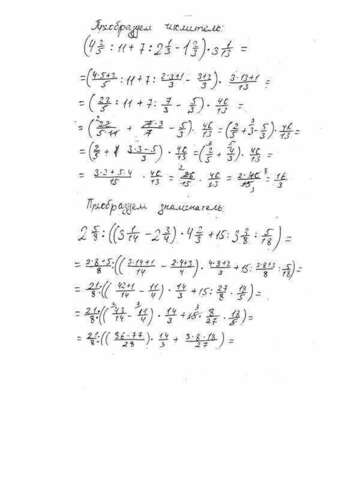 Преобразуем числитель:
(4 2/5 : 11 + 7 : 2 1/3 - 1 2/3) · 3 1/13 =
= (4·5+2/5 : 11 + 7 : 2·3+1/3 - 3+2/3) · 3·13+1/13 =
= (22/5 : 11 + 7 : 7/3 - 5/3) · 40/13 =
= (22/5·11 + 7·3/7 - 5/3) · 40/13 = (2/5 + 3 - 5/3) · 40/13 =
= (2/5 + 3·3-5/3) · 40/13 = (2/5 + 4/3) · 40/13 =
= 2·3+5·4/15 · 40/13 = 26/15 · 40/13 = 2·40/15 = 16/3
Преобразуем знаменатель:
2 5/8 : ((3 1/14 - 2 3/4) · 4 2/3 + 15 : 3 3/8 : 5/18) =
= 2·8+5/8 : ((3·14+1/14 - 2·4+3/4) · 4·3+2/3 + 15 : 3·8+3/8 : 5/18) =
= 21/8 : ((42+1/14 - 11/4) · 14/3 + 15 : 27/8 · 18/5) =
= 21/8 : ((43/14 - 11/4) · 14/3 + 15 · 8/27 · 18/5) =
= 21/8 : ((86-77/28) · 14/3 + 3·8·18/27) =